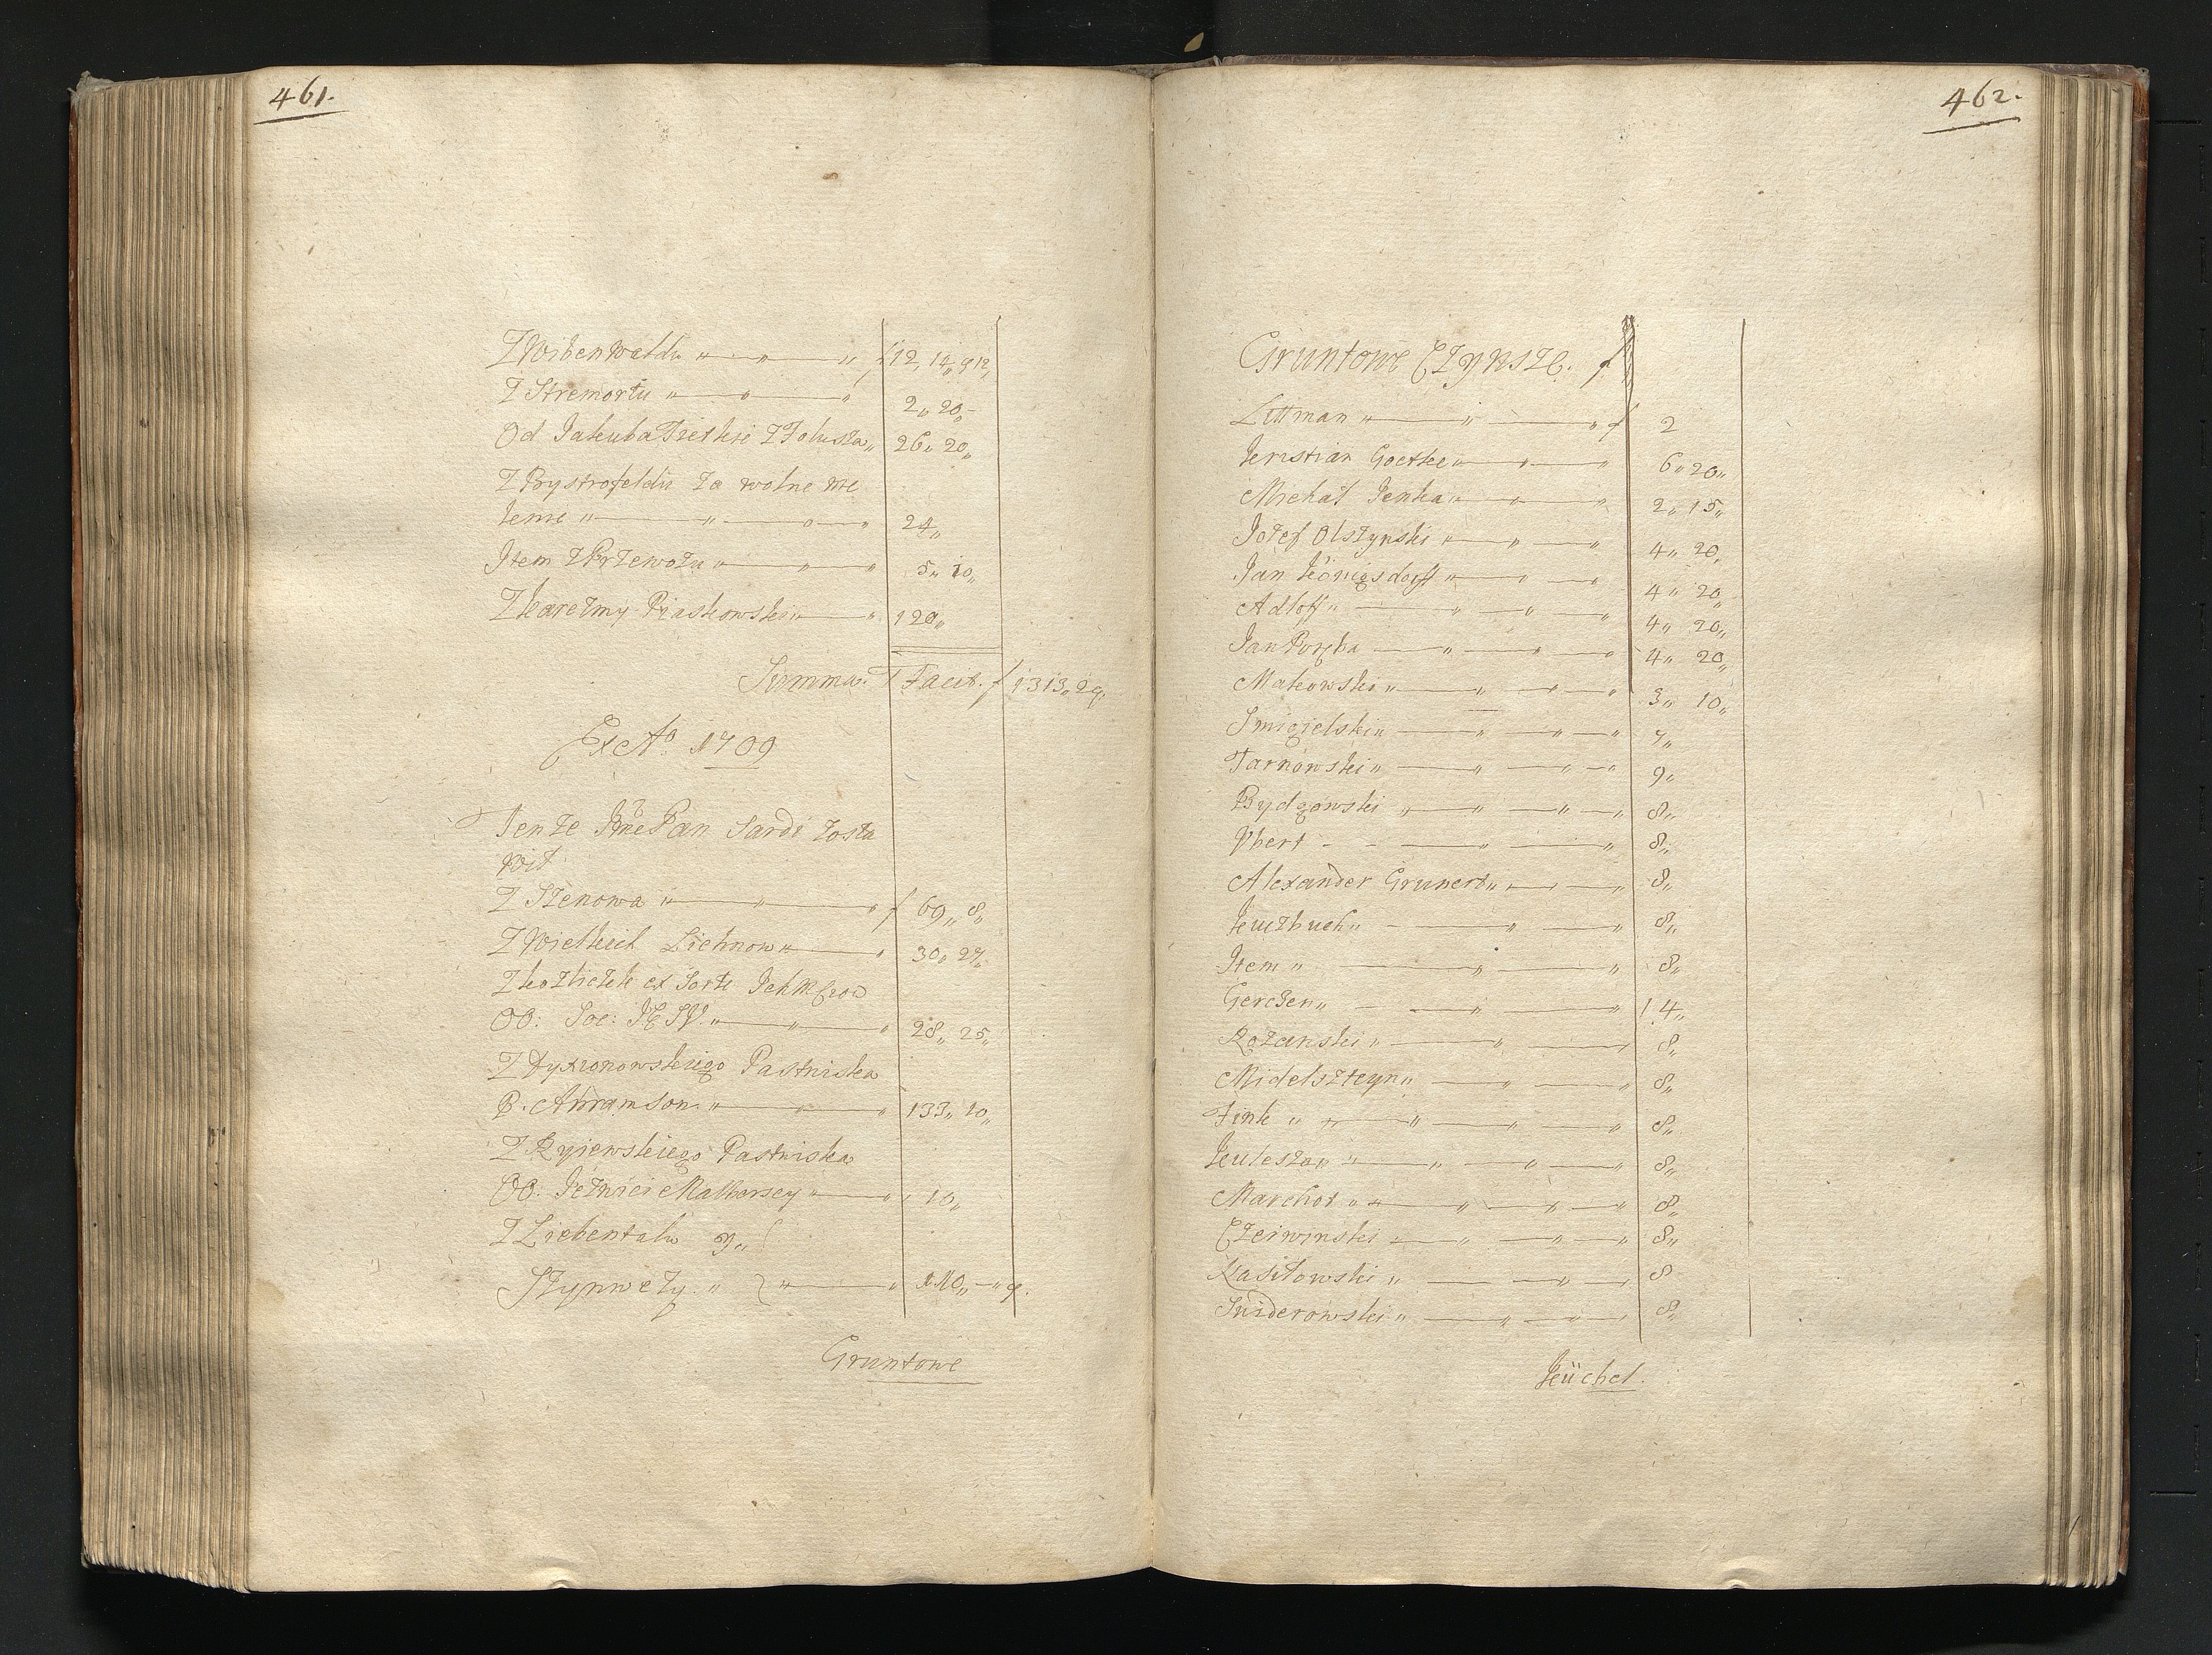 461.
Z Wibenwaldu " — " — " f 12, 14, 9 12,
Z Stremortu " — " — " 2,, 20,, -
Od Jakuba Tzetkie Z Toluska,, 26,, 20,,
Z Bystrofeldu Za wolne mle
kenie " — " — " — " 24,,
Item Z Przewozu " — " — " 5,, 10,,
Z karczmy Piaskowskiey " — " 120,,
Summa Facit. f 1313,, 29,
Ex Aº 1709
Tenze Jmc Pan Sardi zosta
wił
Z Szenowa " — " — " f 69,, 8,,
Z Wielkich Lichnow " — " 30,, 27,,
Z kozliczek ex Sorte
OO: Soc: JESV. " — " — " 28,, 25,,
Z Pastwiska
P. Abramson " — " — " 133,, 10,,
Z Ryiewskiego Pastwiska
OO: Malborscy " — " 10,,
Z Liebentalu y,,
Sztynwezy " } " — " 110,, — " 9.
Gruntowe
462.
Gruntowe Czynsze. f
Littman " — " — " f 2
Kristian Goetke " — " — " 6,, 20,,
Michał Penka " — " — " 2,, 15,,
Jozef Olszynski " — " — " 4,, 20,
Jan Königsdorff " — " — " 4,, 20,,
Adloff " — " — " — " 4,, 20,,
Jan Poręba — " — " — " 4,, 20,,
Makowski " — " — " — " 3,, 10,,
Smigielski " — " — " — " 7,,
Tarnowski " — " — " — " 9,,
Bydgowski " — " — " — " 8,,
Ybert - - — " — " 8,,
Alexander Grunert " — " — " 8,,
Kuczbuch " - — " — " 8,,
Item " — " — " 8,,
Gerczen " — " — " 14,,
Rozanski " — " — 8,,
Midelszteyn " — " — " 8,,
Fink " — " — " — " 8,,
Kulesza " " — " — " — " 8,,
Marchot " — " — " — " 8,,
Czerwinski " — " — " — " 8,,
Kasiłowski " — " — 8
Sniderowski " — " — " — 8,,
Küchel.